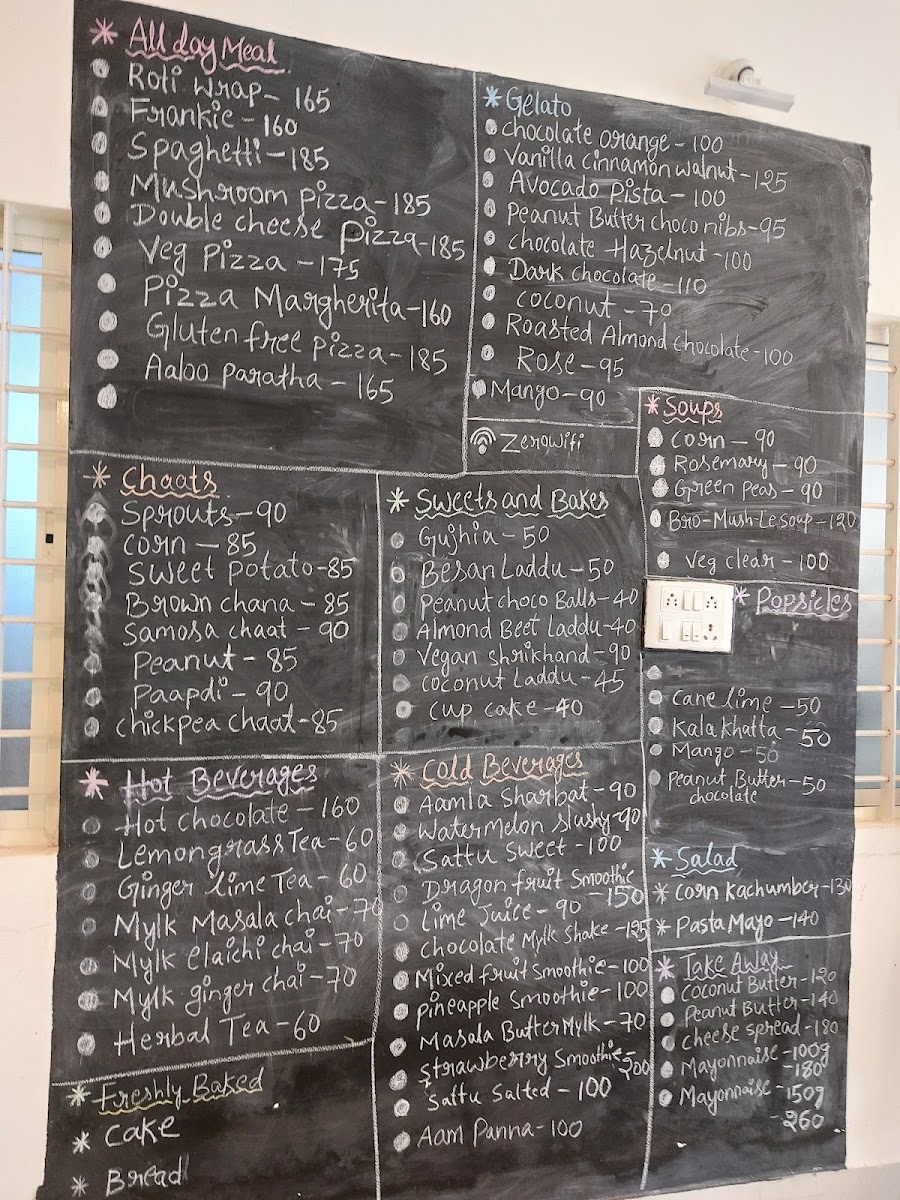 * All day Meal
Roti wrap - 165
Frankie - 160
Spaghetti - 185
Mushroom pizza - 185
Double cheese pizza - 185
Veg pizza - 175
Pizza Margherita - 160
Gluten free pizza - 185
Aaloo paratha - 165
* Gelato
chocolate orange - 100
Vanilla cinnamon walnut - 125
Avocado pista - 100
Peanut Butter choco nibs - 95
chocolate Hazelnut - 100
Dark chocolate - 110
coconut - 70
Roasted Almond chocolate - 100
Rose - 95
Mango - 90
Zerowifi
* Soups
corn - 90
Rosemary - 90
Green peas - 90
Bro-Mush-Le soup - 120
veg clear - 100
* Chaats
Sprouts - 90
corn - 85
sweet potato - 85
Brown chana - 85
samosa chaat - 90
Peanut - 85
Paapdi - 90
chickpea chaat - 85
* Sweets and Bakes
Gujhia - 50
Besan Laddu - 50
Peanut choco Balls - 40
Almond Beet Laddu - 40
Vegan shrikhand - 90
coconut Laddu - 45
cup cake - 40
* Popsicles
cane lime - 50
Kala Khatta - 50
Mango - 50
Peanut Butter - 50
chocolate
* Hot Beverages
Hot chocolate - 160
Lemongrass Tea - 60
Ginger lime Tea - 60
Mylk Masala chai - 70
Mylk elaichi chai - 70
Mylk ginger chai - 70
Herbal Tea - 60
* Cold Beverages
Aamla sharbat - 90
Watermelon slushy - 90
Sattu sweet - 100
Dragon fruit smoothie
- 150
Lime Juice - 90
chocolate Mylk shake - 125
Mixed fruit smoothie - 100
pineapple smoothie - 100
Masala Butter Mylk - 70
strawberry smoothie
200
Sattu salted - 100
Aam Panna - 100
* Salad
* corn kachumber - 130
* Pasta Mayo - 140
* Take Away
coconut Butter - 120
Peanut Butter - 140
cheese spread - 180
Mayonnaise - 100g
- 180
Mayonnaise - 150g
- 260
* Freshly Baked
* Cake
* Bread